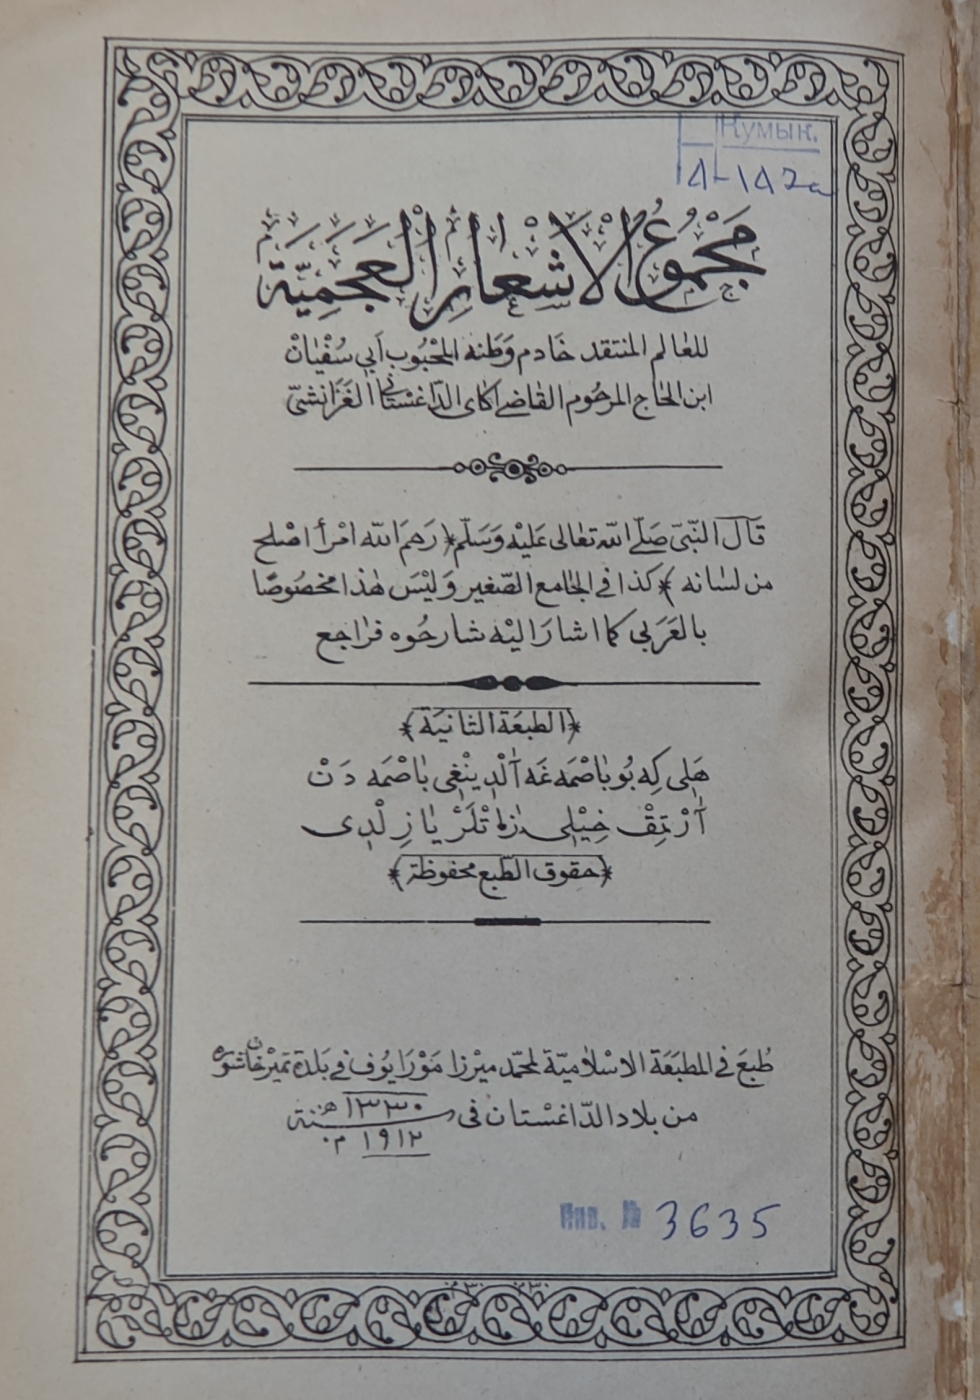 Кумык.
А-142а
مَجْمُوعُ الْاَشْعَارِ الْعَجَمِيَّة
للعٰالم المنتقد خَادم وَطَنه المَحْبُوب اَبي سُفْيٰانْ
ابن الحٰاج المرحُوم القٰاضي اَكٰاى الدّاغستٰاني الغَزَانشىّ
قَالَ النّبىّ صَلّى اللّه تعٰالى عَلَيْه وَسَلّم ﴿ رَحمَ اللّه امْرأً اصْلح
من لسٰانه ﴾ كذا فى الجٰامع الصّغير وَلَيْسَ هٰذا مخصُوصًا
بالعَرَبى كمَا اشارَ اليْه شارحُوه فرٰاجع
﴿الطبعَة الثانيَة﴾
هَلى كِه بُو بٰاصْمَه غَه آلْدِينْغى بٰاصْمَه دَنْ
آرْتِقْ خِيْلى زٰاتْلَرْ يٰازِلْدى
﴿حقوق الطّبع محفوظة﴾
طُبعَ في المطبَعَة الاسْلاميّة لمحمّد ميرْزا مَوْرَايُوف في بَلدة تميرْخان شوره
من بلاد الدّاغسْتان فى سنة ١٣٣٠ هـ
١٩١٢ م
Инв. № 3635